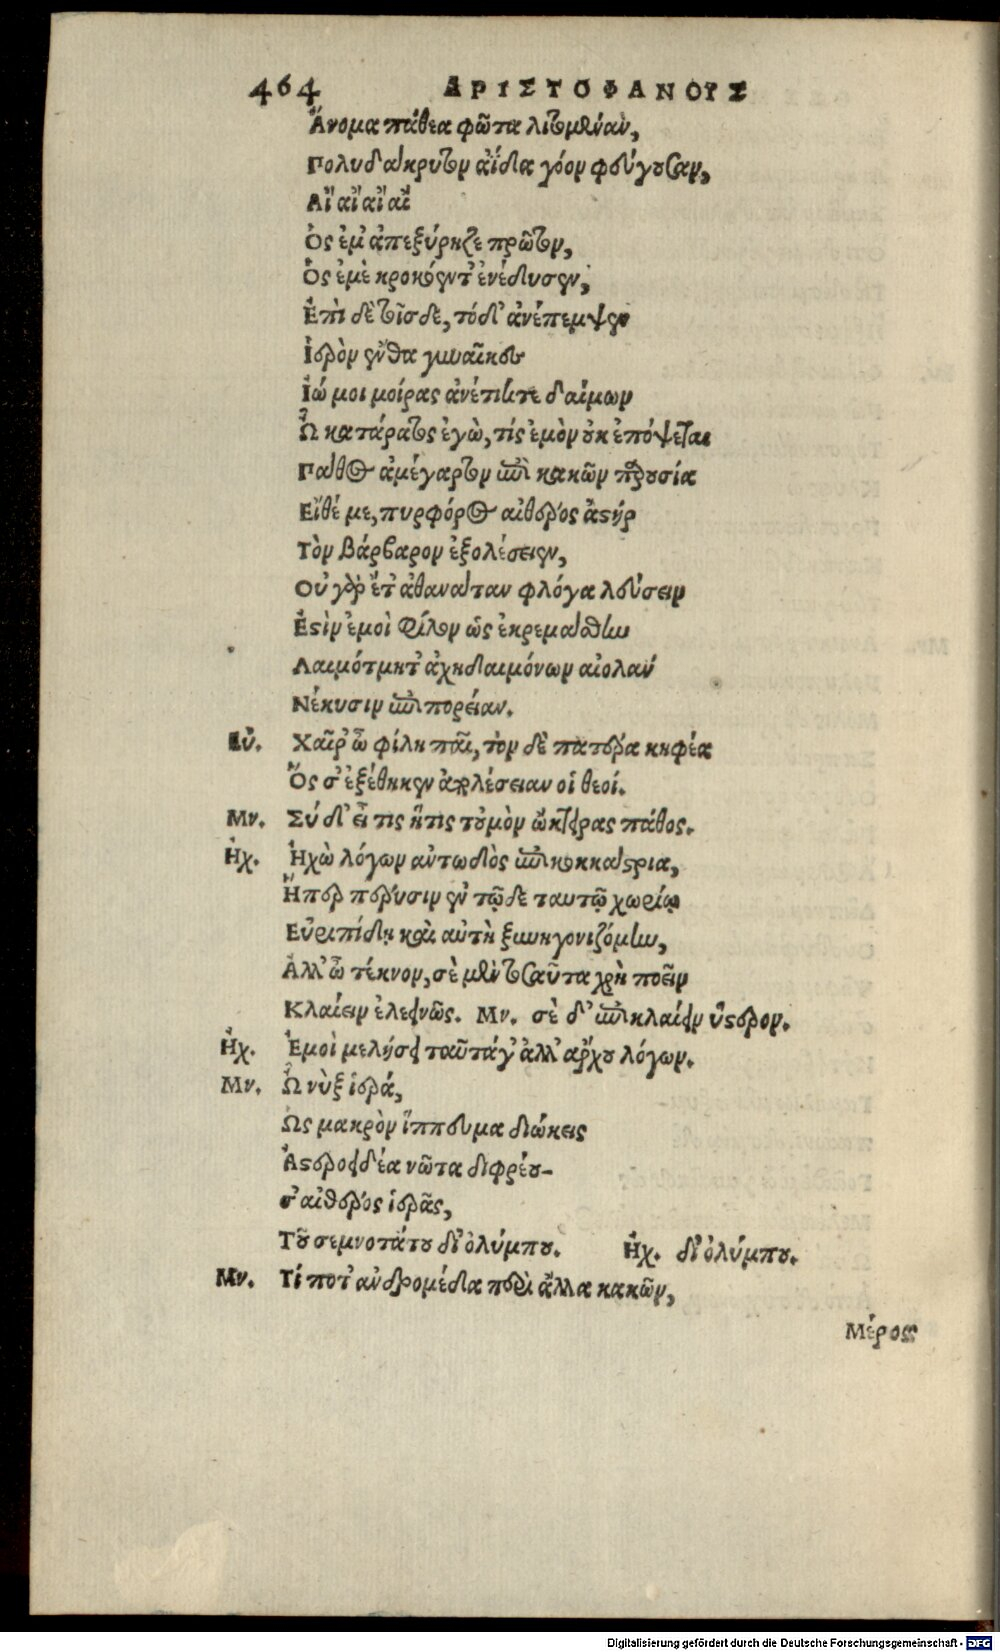 464 ΑΡΙΣΤΟΦΑΝΟΥΣ
Ἄνομα πάθεα φῶτα λιτομέναν,
Πολυδάκρυτον ἀΐδια γόον φεύγουσαν,
Αἲ αἲ αἲ αἲ
Ὃς ἔμ' ἀπεξύρησε πρῶτον,
Ὃς ἐμὲ κροκόεντ' ἐνέδυσεν,
Ἐπὶ δὲ τοῖσδε, τόδ' ἀνέπεμψεν
Ἱερὸν ἔνθα γυναῖκες
Ἰώ μοι μοίρας ἀνέτικτε δαίμων
Ὦ κατάρατος ἐγὼ, τίς ἐμὸν οὐκ ἐπόψεται
Πάθος ἀμέγαρτον ἐπὶ κακῶν παρουσία
Εἴθέ με, πυρφόρος αἰθέρος ἀστήρ
Τὸν βάρβαρον ἐξολέσειεν,
Οὐ γὰρ ἔτ' ἀθανάταν φλόγα λεύσειν
Ἐστὶν ἐμοὶ φίλον ὡς ἐκρεμάσθην
Λαιμότμητ' ἄχη δαιμόνων αἰολαν
Νέκυσιν ἐπὶ πορείαν.
Εὐ. Χαῖρ' ὦ φίλη παῖ, τὸν δὲ πατέρα κηφέα
Ὅς σ' ἐξέθηκεν ἀπολέσειαν οἱ θεοί.
Μν. Σύ δ' εἶ τις ἥτις τοὐμὸν ᾤκτειρας πάθος.
Ἠχ. Ἠχὼ λόγων αὐτωδὸς ἐπικοκκάστρια,
Ἥπερ πέρυσιν ἐν τῷδε ταυτῷ χωρίῳ
Εὐριπίδῃ καὶ αὐτὴ ξυνηγονιζόμην,
Ἀλλ' ὦ τέκνον, σὲ μὲν τοσαῦτα χρὴ ποεῖν
Κλαίειν ἐλεεινῶς. Μν. σὲ δ' ἐπικλαίειν ὕστερον.
Ἠχ. Ἐμοὶ μελήσει ταῦτά γ' ἀλλ' ἄρχου λόγων.
Μν. Ὦ νὺξ ἱερά,
Ὡς μακρὸν ἵππευμα διώκεις
Ἀστεροειδέα νῶτα διφρέυ-
σ' αἰθέρος ἱερᾶς,
Τοῦ σεμνοτάτου δι' ὀλύμπου. Ἠχ. δι' ὀλύμπου.
Μν. Τί ποτ' ἀνδρομέδα περὶ ἄλλα κακῶν,
Μέρος
Digitalisierung gefördert durch die Deutsche Forschungsgemeinschaft - DFG